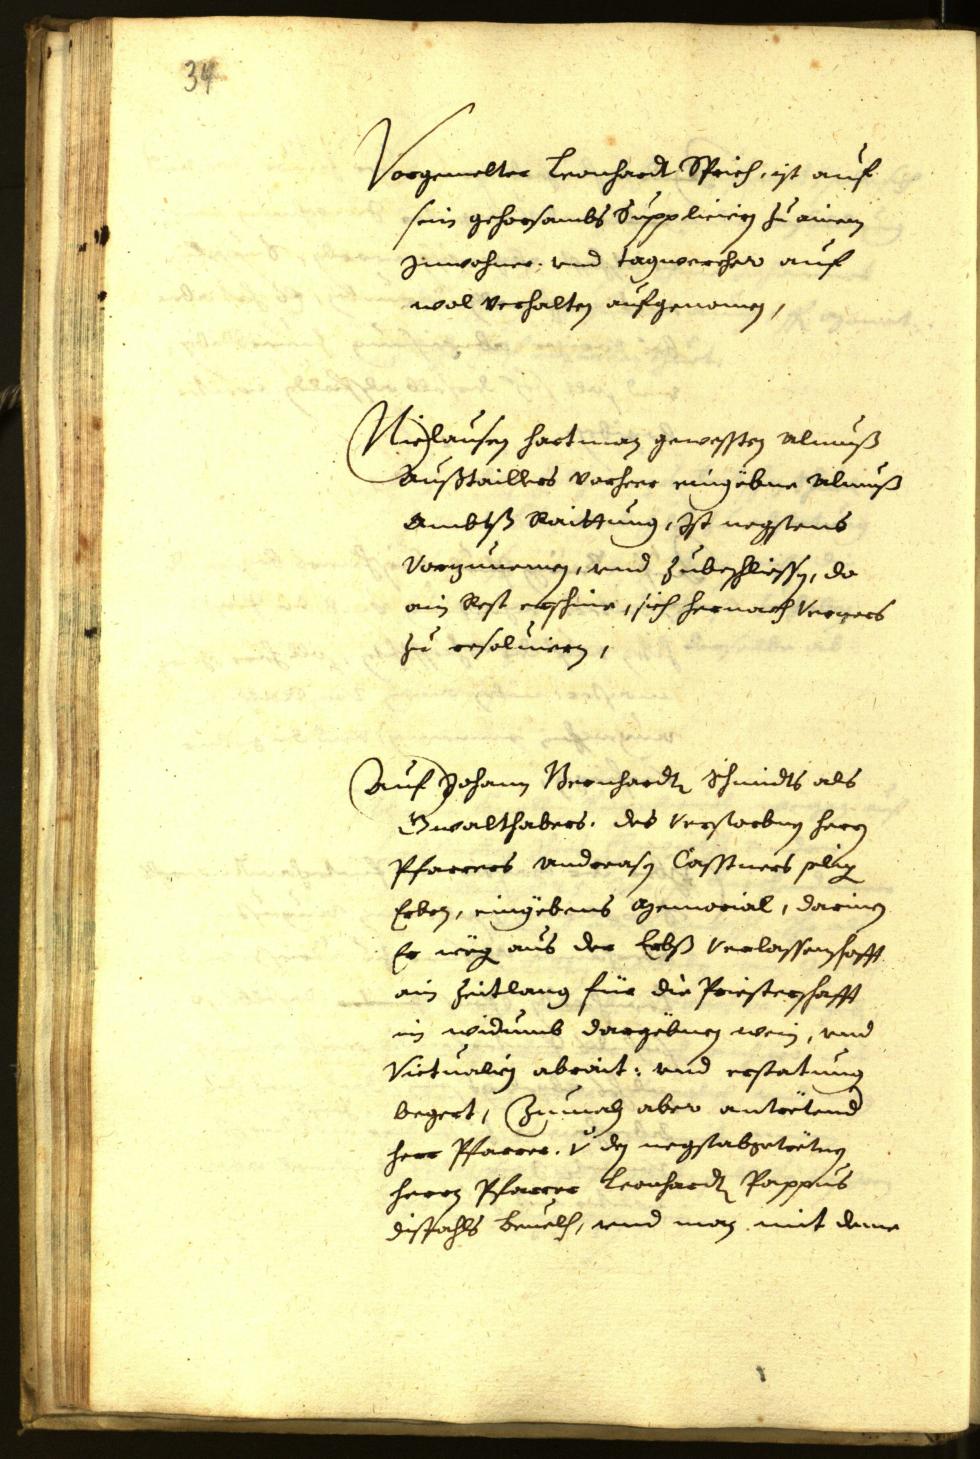 34
Vorgemelter Leonhardt Strich, ist auf
sein gehorsambs Suppliciern zu ainem
Inwohner. vnd tagwercher auf
wol verhalten aufgenomen,
Niclausen Hartman gewessten Almuß
Außtaillers vorheer eingëbne Almuß
Ambtß Raittung, Ist negstens
vorzunemen, vnd zubeschliessen, da
ain Rest erschine, sich hernach verrers
zu resoluiern,
Auf Johann Bernhardt Schmidts als
Gwalthabers. des verstorbnen herrn
Pfarrers Andreasen Casstners selig
Erben, eingëbens Memorial, darinen
Er aus der Erbß verlassenschafft
ain Zeitlang für die Priesterschafft
in widumb dargëbnen wein, vnd
Victualien abrait: vnd erstatung
begert, Zumaln aber antrëtend
herr Pfarrer. v den negstabgetrëtnen
herrn Pfarrer Leonhardt Pappus
dissfahls beuelch, vnd man mit deme